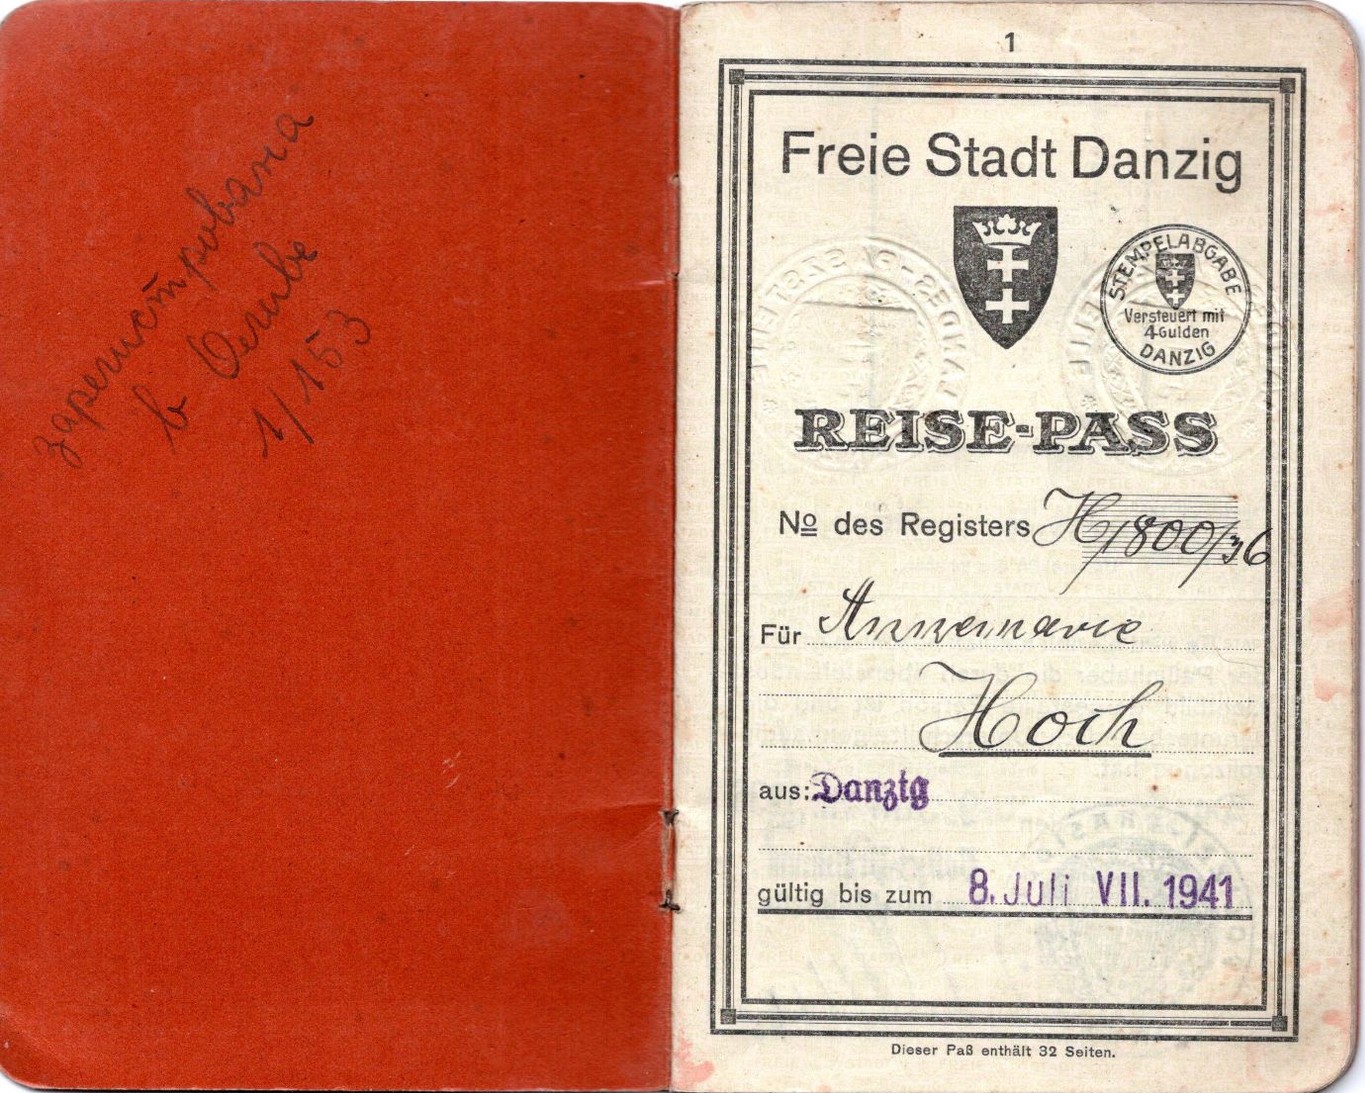 зарегистрована
в
1/153
1
Freie Stadt Danzig
STEMPELABGABE
Versteuert mit
4 Gulden
DANZIG
REISE-PASS
No des Registers H/800/36
Für Annemarie
Hoch
aus: Danzig
gültig bis zum 8. Juli VII. 1941
Dieser Paß enthält 32 Seiten.